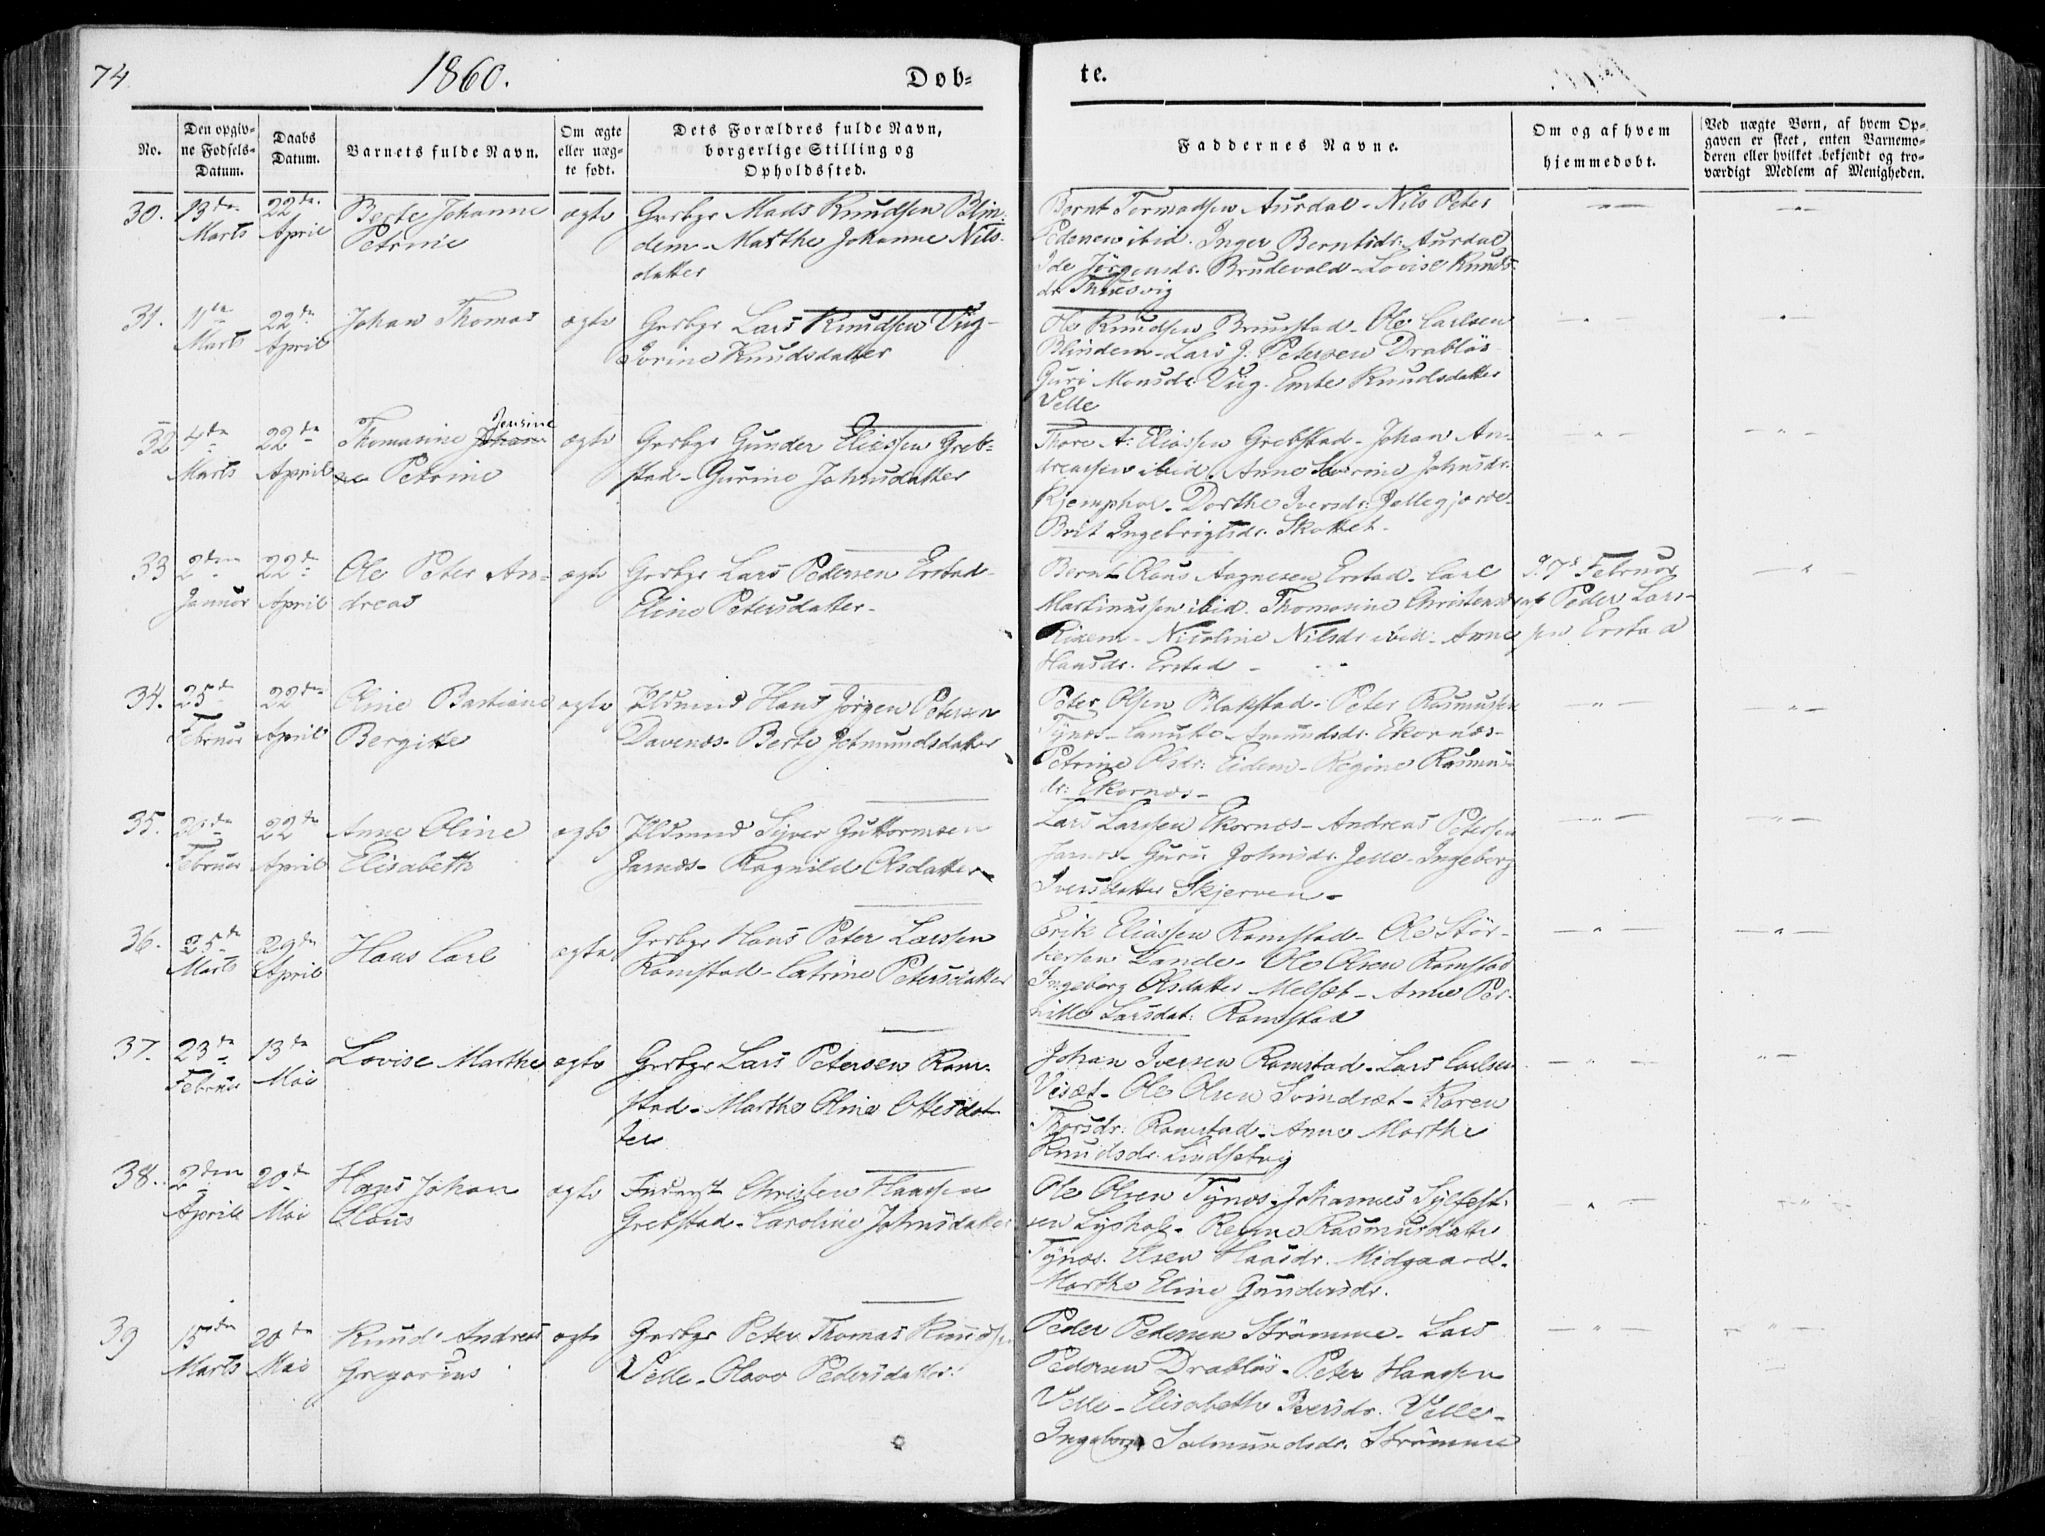 74.
1860.
Døb-
te.
No.
Den opgiv-
ne Fødsels-
Datum.
Daabs
Datum.
Barnets fulde Navn.
Om ægte
eller uæg-
te født.
Dets Forældres fulde Navn,
borgerlige Stilling og
Opholdssted.
Faddernes Navne.
Om og af hvem
hjemmedøbt.
Ved uægte Børn, af hvem Op-
gaven er skeet, enten Barnemo-
deren eller hvilket bekjendt og tro-
værdigt Medlem af Menigheden.
30.
13de
Marts
22de
April
Berte Johanne
Petrine
ægte
Grbgr Mads Knudsen Blin-
dem - Marthe Johanne Nils-
datter
Bernt Tormodsen Aursdal - Nils Peter
Pedersen ibid. Inger Berntsdr. Aursdal
Ide Jørgensdr. Brudevold - Lovise Knuds-
dr.
31.
11te
Marts
22de
April
Johan Thomas
ægte
Grbgr Lars Knudsen Viig -
Jorine Knudsdatter
Ole Knudsen Brunstad - Ole Carlsen
Blindem - Lars J. Petersen Drabløs
Guri Monsdr. Viig. Emte Knudsdatter
Velle
32
4de
Marts
22de
April
Jensine
Thomasine Johan
ne Petrine
ægte
Grbgr Gunder Eliassen Greb-
stad - Gurine Johnsdatter
Thore A. Eliassen Grebstad - Johan An-
dreassen ibid. Anne Severine Johnsdr.
Kjemphol - Dorthe Iversdr. Jellegjerde -
Brit Ingebrigtsdr. Skottet -
33
2den
Januar
22de
April
Ole Peter An-
dreas
ægte
Grbgr Lars Pedersen Erstad -
Eline Petersdatter -
Bernt Olaus Aagnesen Erstad - Carl
Martinussen ibid. Thomasine Christensdr
Riksem - Nicoline Nilsdr. ibid - Anne
Hansdr. Erstad -
d. 7de Februar
af Peder Lars-
sen Erstad
34.
25de
Februar
22de
April
Oline Bastiane
Bergitte
ægte
Hans Jørgen Petersen
Davenæs - Berte Jetmundsdatter
Peter Olsen Blakstad - Peter Rasmussen
Tynæs - Amundsdr. Ekornæs -
Petrine Olsdr. Eidem - Regine Rasmus-
dr. Ekornæs -
35.
Februar
22de
April
Anne Oline
Elisabeth
ægte
Siver Guttormsen
Jarnæs - Ragnild Olsdatter -
Lars Larssen Ekornæs - Andreas Petersen
Jarnæs - Guru Johnsdr. Jelle - Ingeborg
Iversdatter Skjerven -
36.
25de
Marts
29de
April
Hans Carl
ægte
Grbgr Hans Peter Larssen
Ramstad - Catrine Petersdatter
Erik Eliassen Ramstad - Ole Stør-
kersen Lande - Ole Olsen Ramstad
Ingeborg Olsdatter Melsæt - Anne Per-
nille Larsdat. Ramstad
37.
23de
Februar
13de
Mai
Lovise Marthe
ægte
Grbgr Lars Petersen Ram-
stad - Marthe Oline Ottersdat-
ter
Johan Iversen Ramstad - Lars Carlsen
Visæt - Ole Olsen Svindsæt - Karen
Thorsdr. Ramstad - Anne Marthe
Knudsdr.
38.
2den
April
20de
Mai
Hans Johan
Olaus
ægte
Inderst Christen Hanssen
Grebstad - Caroline Johnsdatter
Ole Olsen Tynæs - Johannes Sylfest-
sen Lyshol - Regine Rasmusdatter
Tynæs. Elsen Haasdr. Midgaard -
Marthe Eline Gundersdr.
39
15de
Marts
20de
Mai
Knud Andreas
Gregorius
ægte
Grbgr Peter Thomas Knudsen
Velle - Olave Pedersdatter
Peder Pedersen Strømme - Lars
Pedersen Drabløs - Peter Hanssen
Velle - Elisabeth Iversdr. Velle -
Ingeborg Salmundsdr. Strømme